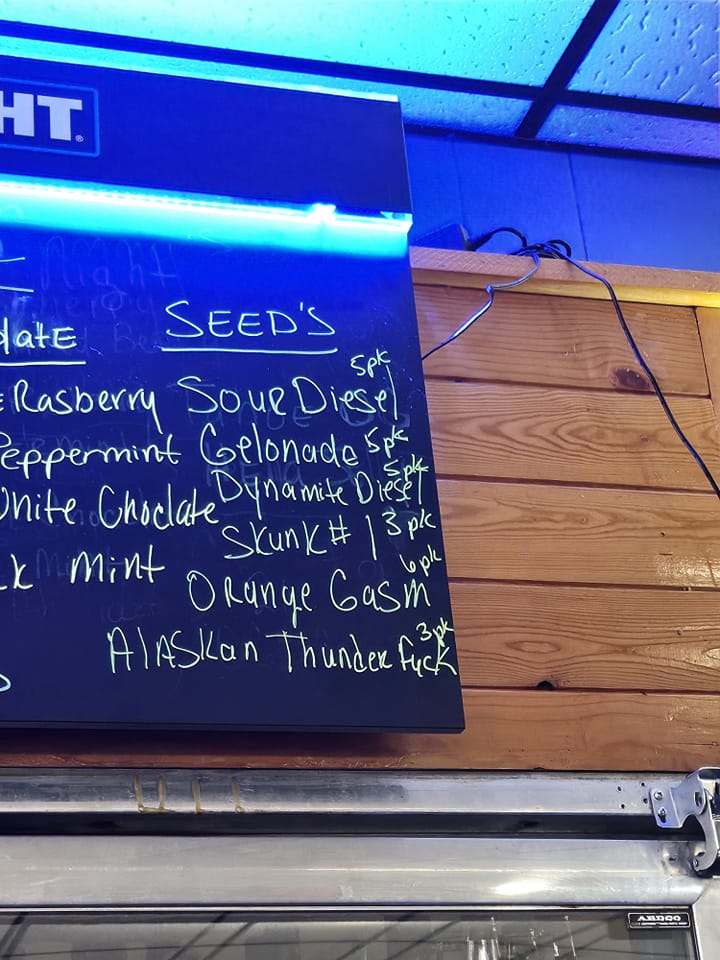 HT.
SEED'S
late
Rasberry Sour Diesel 5pk
Peppermint Gelonade 5pk
White Choclate Dynamite Diesel 5pk
Skunk # 1 3pk
k mint
Orange Gasm 6pk
Alaskan Thunder Fuck 3pk
ARDCO